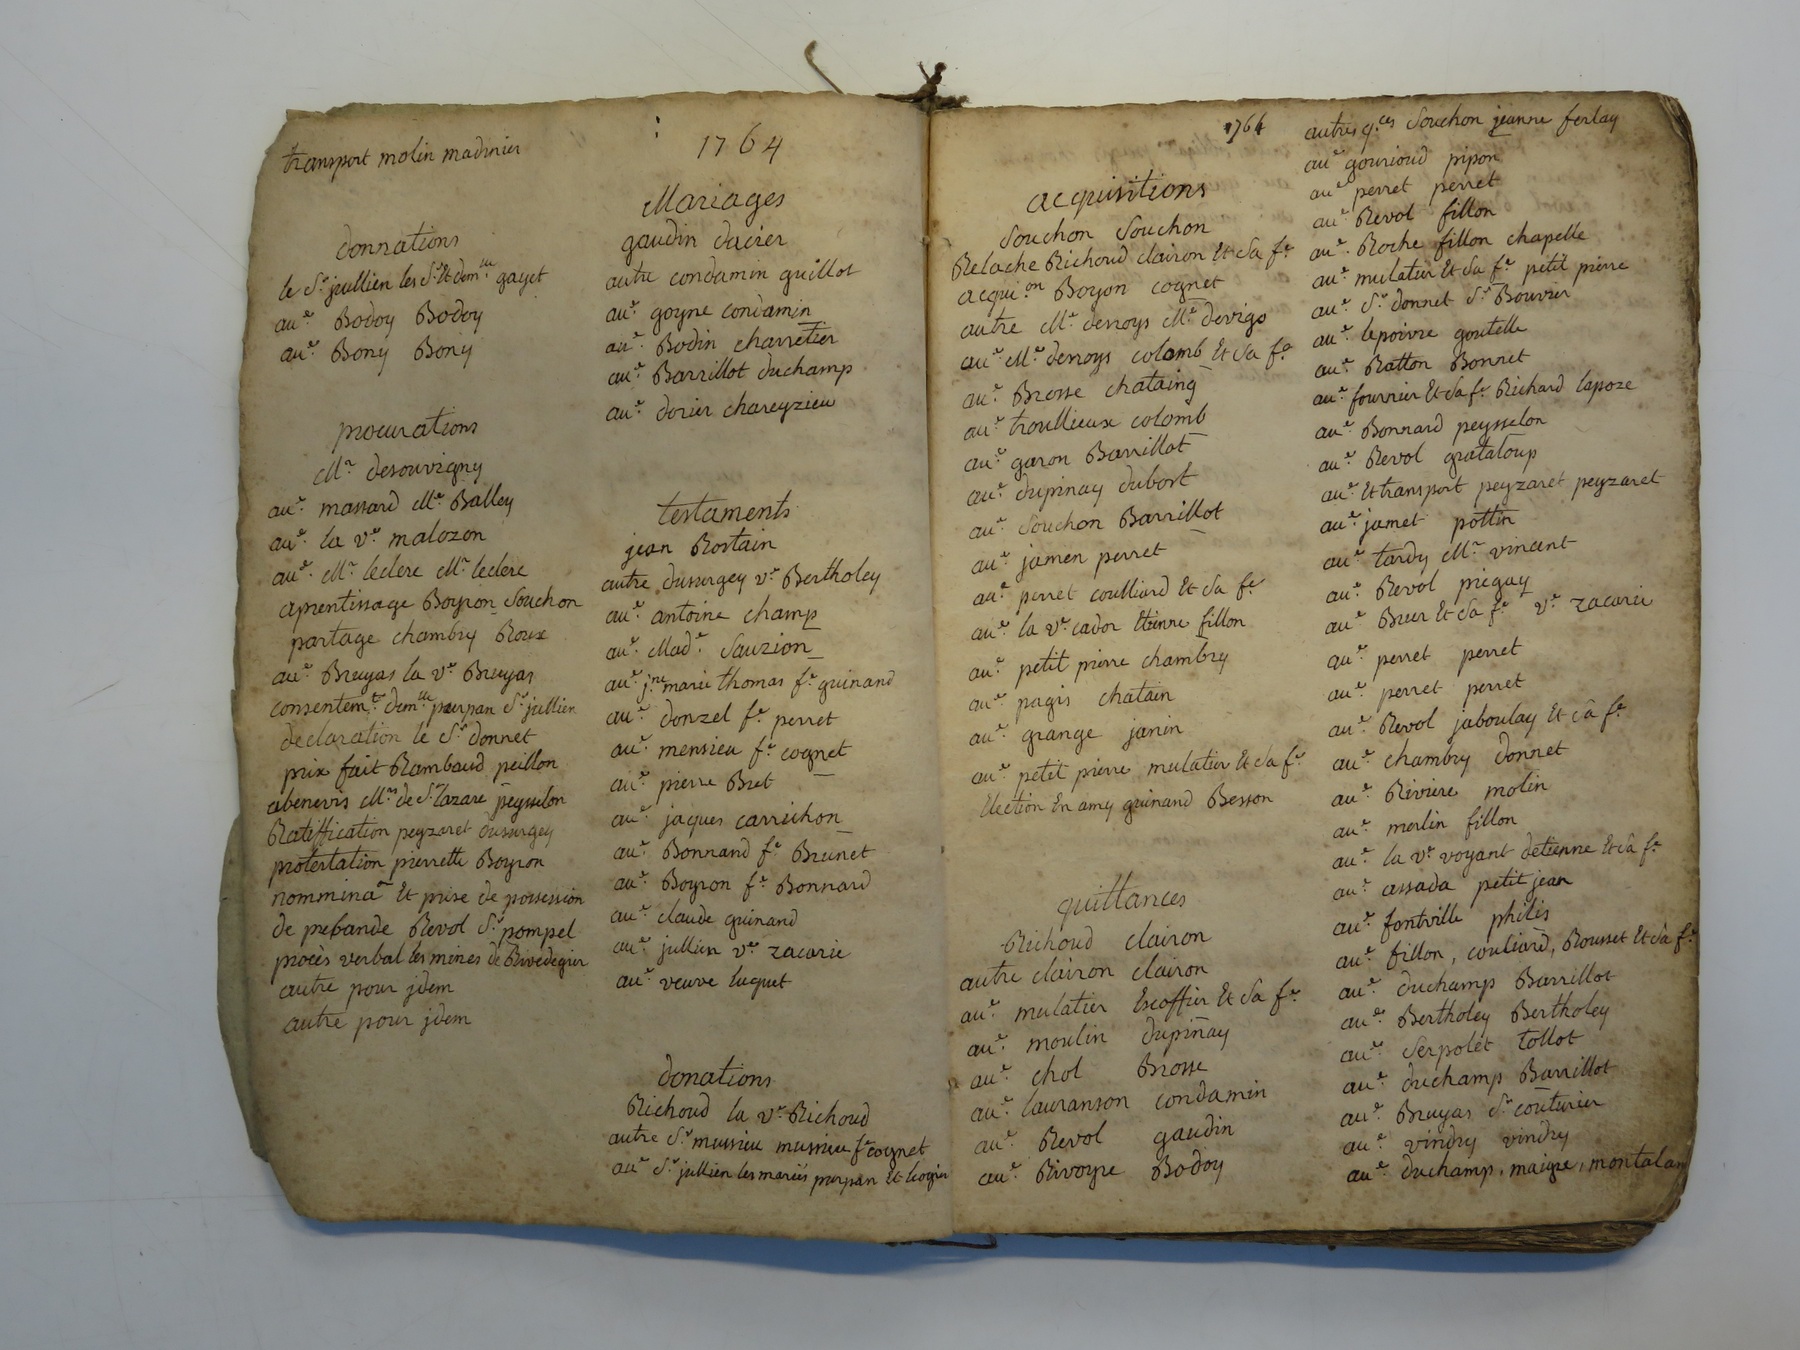 transport molin madinier
donnations
le Sr jullien les Srs Et demlle gayet
aue Bodoy Bodoy
aue Bony Bony
procurations
Mr desouvigny
aue massard Me Balley
aue la ve malozon
aue Mr leclerc Mr leclerc
aprentissage Boyron Souchon
partage chambry Roux
aue Bruyas la ve Bruyas
consentemt demlle purpan Sr jullien
declaration le Sr donnet
prix fait Rambaud peillon
abenevis Mrs de St lazare peysselon
Ratiffication peyzaret dusurgey
protestation pierrette Boyron
nomminaon Et prise de possession
de prebande Revol Sr pompel
procès verbal les mines de Rivedegier
autre pour jdem
autre pour jdem
1764
Mariages
gaudin dacier
autre condamin guillot
aue goyne condamin
aue Bodin charretier
aue Barrillot duchamp
aue dorier chareyzieu
testaments
jean Rostain
autre dusurgey ve Bertholey
aue antoine champ
aue Made Sauzion
aue jne marie thomas fe guinand
aue donzel fe perret
aue mensieu fe cognet
aue pierre Bret
aue jaques carrichon
aue Bonnand fe Brunet
aue Boyron fe Bonnard
aue claude guinand
aue jullien ve zacarie
aue veuve luquet
donations
Richoud la ve Richoud
autre Sr mussieu mussieu fe cognet
aue Sr jullien les mariés purpan Et
1764
acquisitions
Souchon Souchon
Relache Richoud clairon Et Sa fe
acquion Boyon cognet
autre Me desroys Me devigo
aue Me desroys colomb Et Sa fe
aue Brosse chataing
aue troullieux colomb
aue garon Barrillot
aue dupinay dubost
aue Souchon Barrillot
aue jamen perret
aue perret coulliard Et Sa fe
aue la ve cador Etienne fillon
aue petit pierre chambry
aue pagis chatain
aue grange janin
aue petit pierre mulatier Et Sa fe
Election En amy guinand Besson
quittances
Richoud clairon
autre clairon clairon
aue mulatier Escoffier Et Sa fe
aue moulin dupinay
aue chol Brosse
aue lauranson condamin
aue Revol gaudin
aue Rivoyre Bodoy
autres qces Souchon jeanne ferlay
aue gourioud pipon
aue perret perret
aue Revol fillon
aue Roche fillon chapelle
aue mulatier Et Sa fe petit pierre
aue Sr donnet Sr Bouvier
aue lepoivre goutelle
aue Ratton Bonnet
aue fourrier Et Sa fe Richard lapoze
aue Bonnard peysselon
aue Revol grataloup
aue Et transport peyzaret peyzaret
aue jamet pottin
aue tardy Mr vincent
aue Revol pieguay
aue Brer Et Sa fe ve zacarie
aue perret perret
aue perret perret
aue Revol jaboulay Et Sa fe
aue chambry donnet
aue Riviere molin
aue merlin fillon
aue la ve voyant detienne Et Sa fe
aue assada petit jean
aue fontville philis
aue fillon, couliard, Rousset Et Sa fe
aue duchamp Barrillot
aue Bertholey Bertholey
aue Serpolet tollot
aue duchamp Barrillot
aue Bruyas Sr couturier
aue vindry vindry
aue duchamp, maigre, montalan